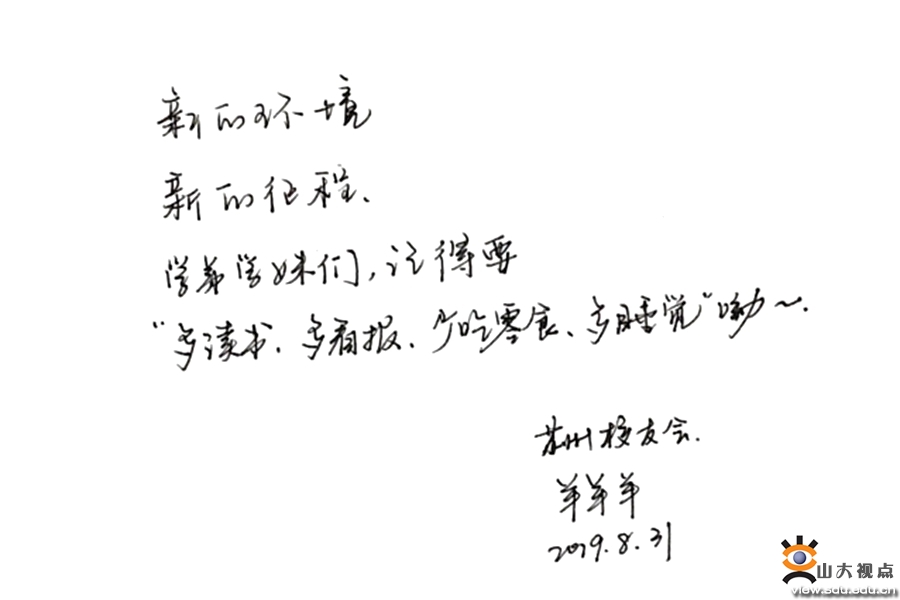 新的环境
新的征程、
学弟学妹们，记得要
“多读书、多看报、少吃零食、多睡觉”呦～.
苏州校友会.
羊羊羊
2019.8.31
山大视点
view.sdu.edu.cn